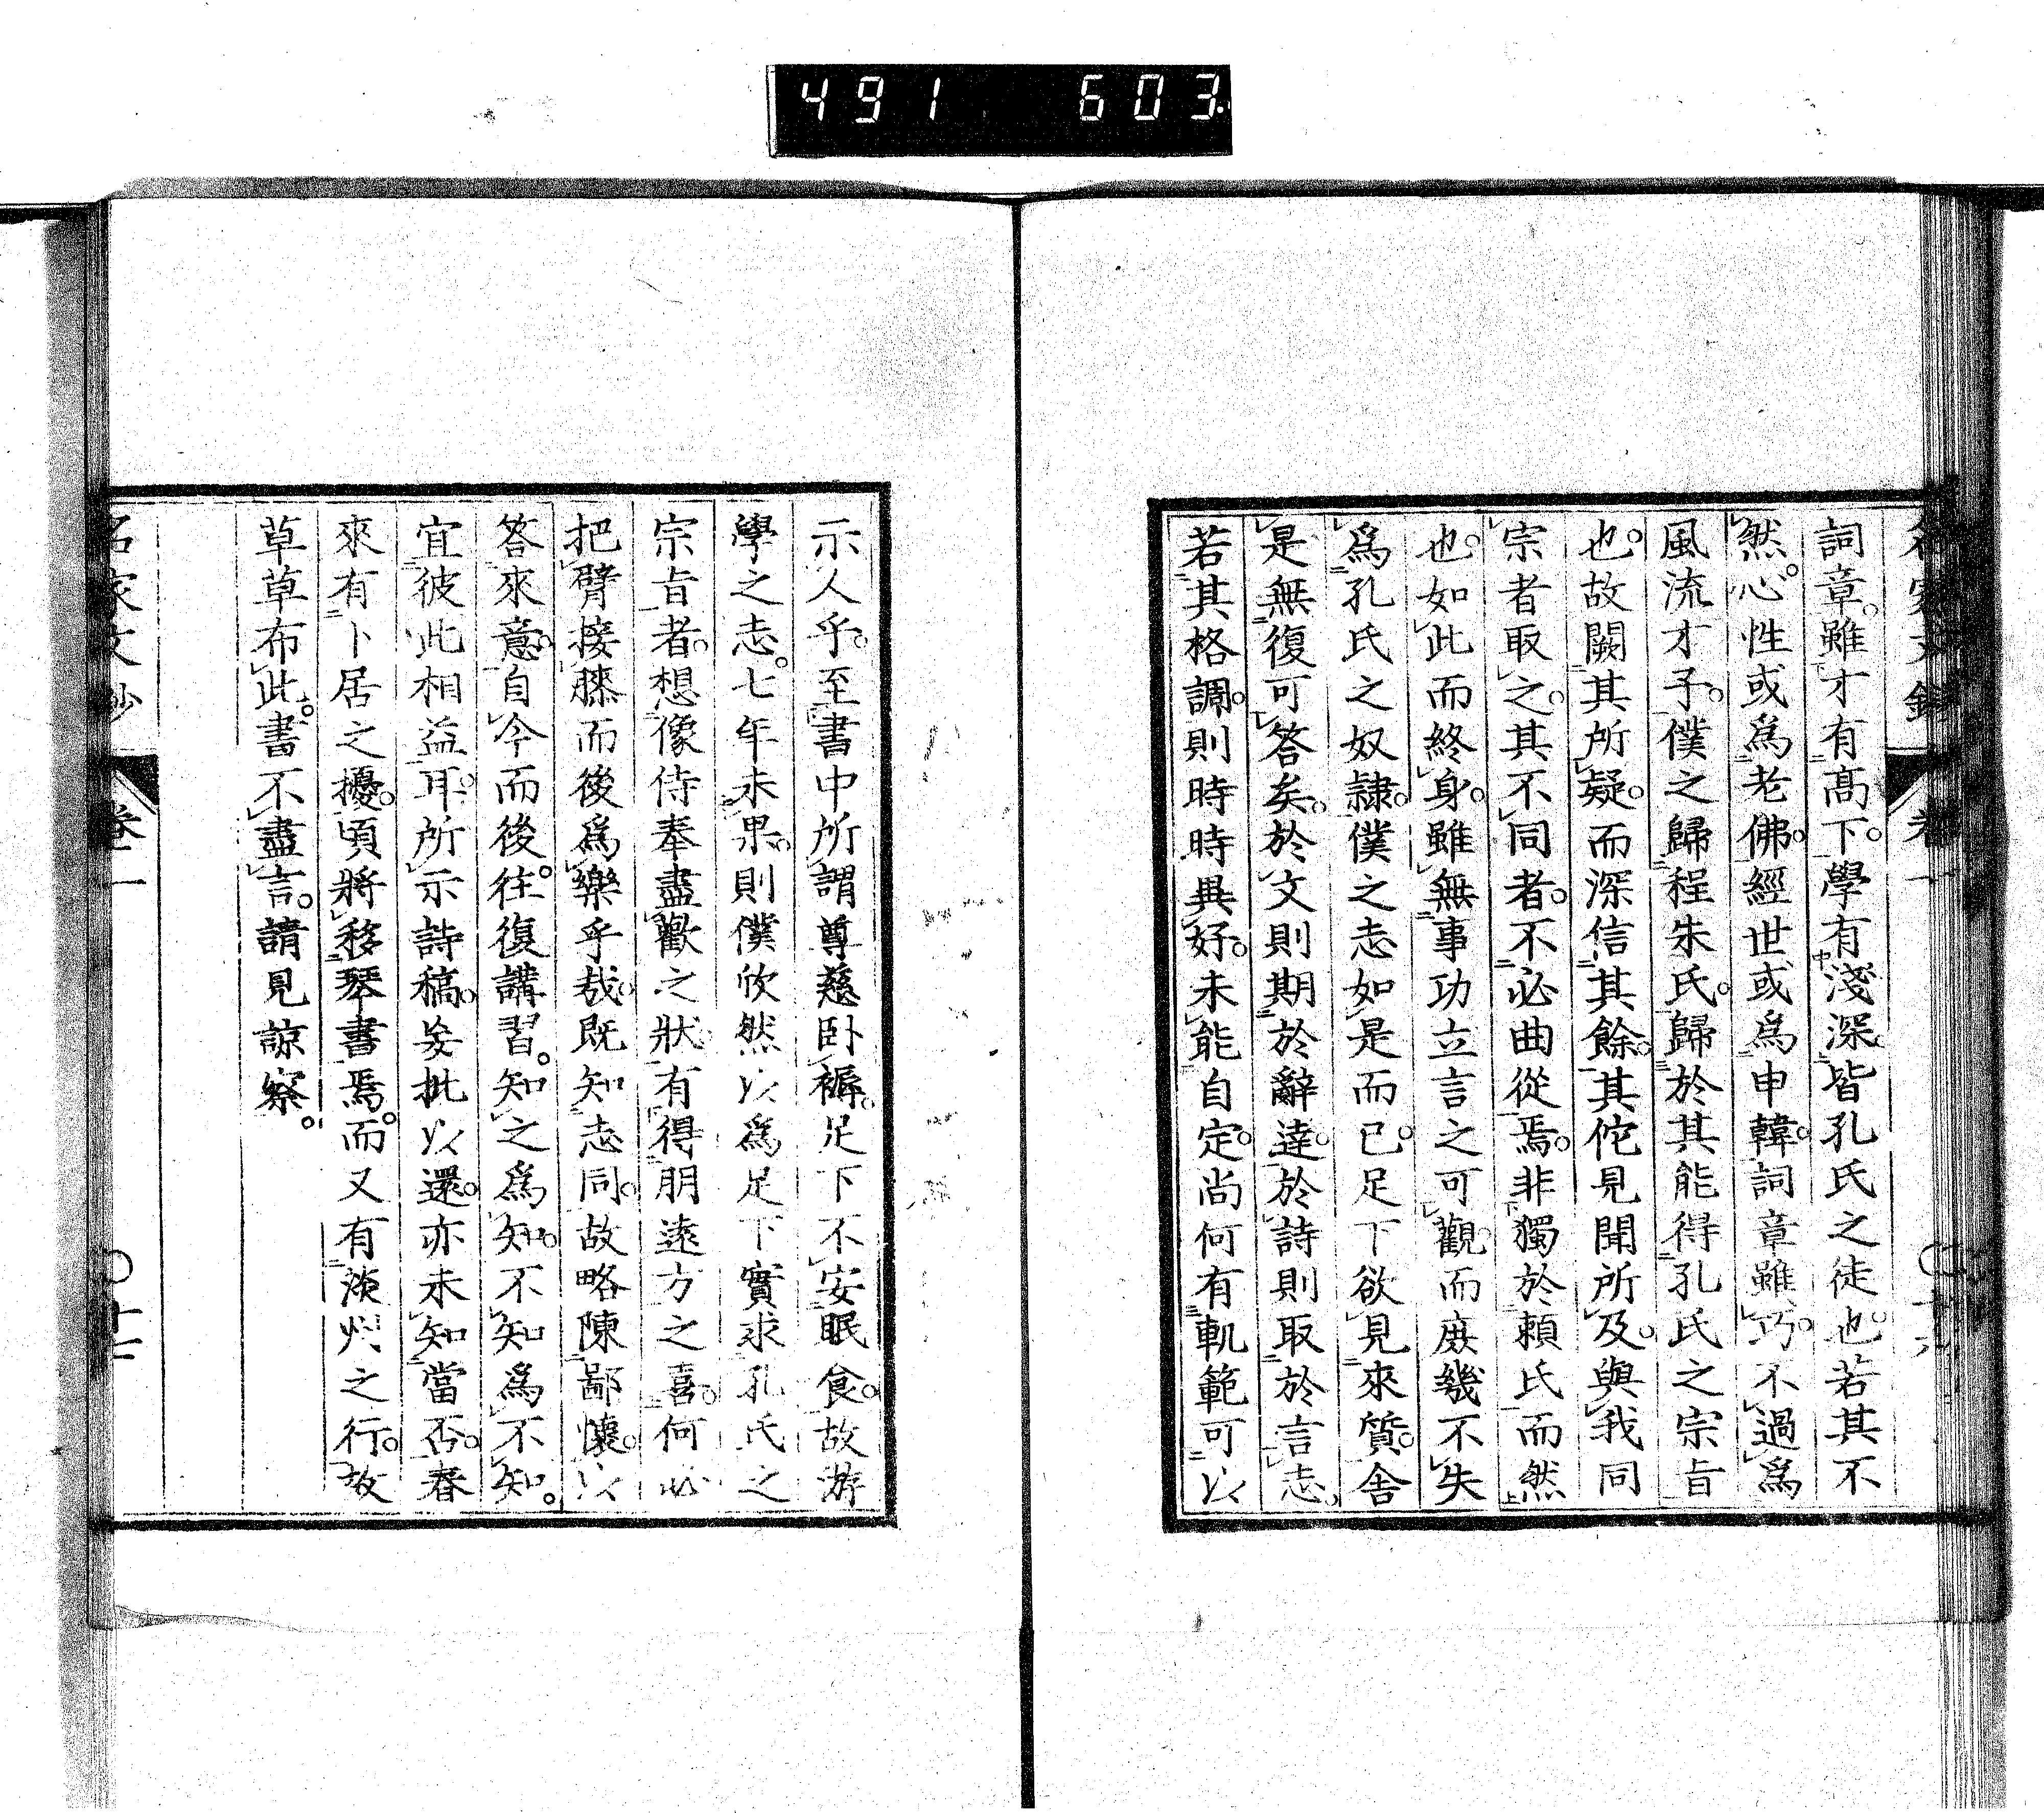 491 603
詞章。雖才有高下。學有淺深。皆孔氏之徒也。若其不
然。心性或爲老佛。經世或爲申韓。詞章雖巧。不過爲
風流才子。僕之歸程朱氏。歸於其能得孔氏之宗旨
也。故闕其所疑。而深信其餘。其佗見聞所及。與我同
宗者取之。其不同者。不必曲從焉。非獨於頼氏而然
也。如此而終身。雖無事功立言之可觀。而庶幾不失
爲孔氏之奴隷。僕之志如是而已。足下欲見來質。舎
是無復可答矣。於文則期於辭達。於詩則取於言志。
若其格調。則時時異好。未能自定。尚何有軌範可以
示人乎。至書中所謂尊慈臥褥。足下不安眠食。故游
學之志。七年未果。則僕欣然以爲足下實求孔氏之
宗旨者。想像侍奉盡歡之狀。有得朋遠方之喜。何必
把臂接膝而後爲樂乎哉。既知志同。故略陳鄙懷。以
答來意。自今而後。往復講習。知之爲知。不知爲不知。
宜彼此相益耳。所示詩稿。妄批以還。亦未知當否。春
來有卜居之擾。頃將移琴書焉。而又有淡州之行。故
草草布此。書不盡言。請見諒察。
名家文鈔 卷一 〇十七